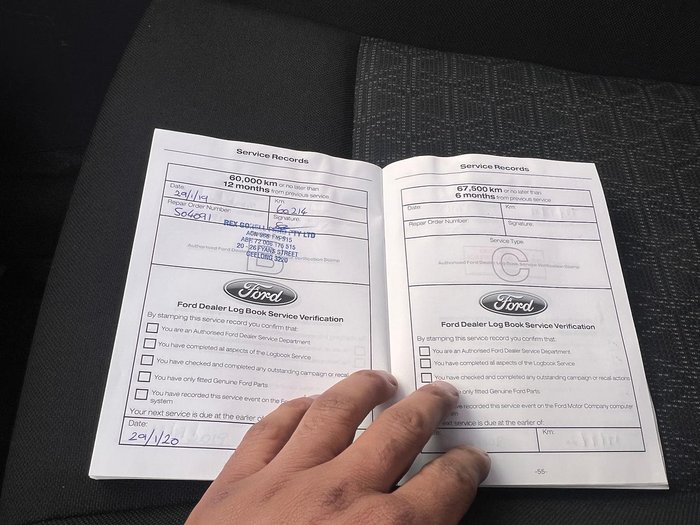 Service Records
60,000 km or no later than
12 months from previous service
Date:
29/1/19
Km:
60214
Repair Order Number:
504091
Signature:
20 - 26 FYANS STREET
GEELONG 3220
B
Ford
Ford Dealer Log Book Service Verification
By stamping this service record you confirm that:
You are an Authorised Ford Dealer Service Department
You have completed all aspects of the Logbook Service
You have checked and completed any outstanding campaign or recal
You have only fitted Genuine Ford Parts
You have recorded this service event on the Fo
system
Your next service is due at the earlier of
Date:
29/1/20
Service Records
67,500 km or no later than
6 months from previous service
Date:
Km:
Repair Order Number:
Signature:
Service Type
Authorised Ford Dealer Log Book Service Verification Stamp
C
Ford
Ford Dealer Log Book Service Verification
By stamping this service record you confirm that:
You are an Authorised Ford Dealer Service Department
You have completed all aspects of the Logbook Service
You have checked and completed any outstanding campaign or recall actions
only fitted Genuine Ford Parts
recorded this service event on the Ford Motor Company computer
service is due at the earlier of:
Km:
-55-